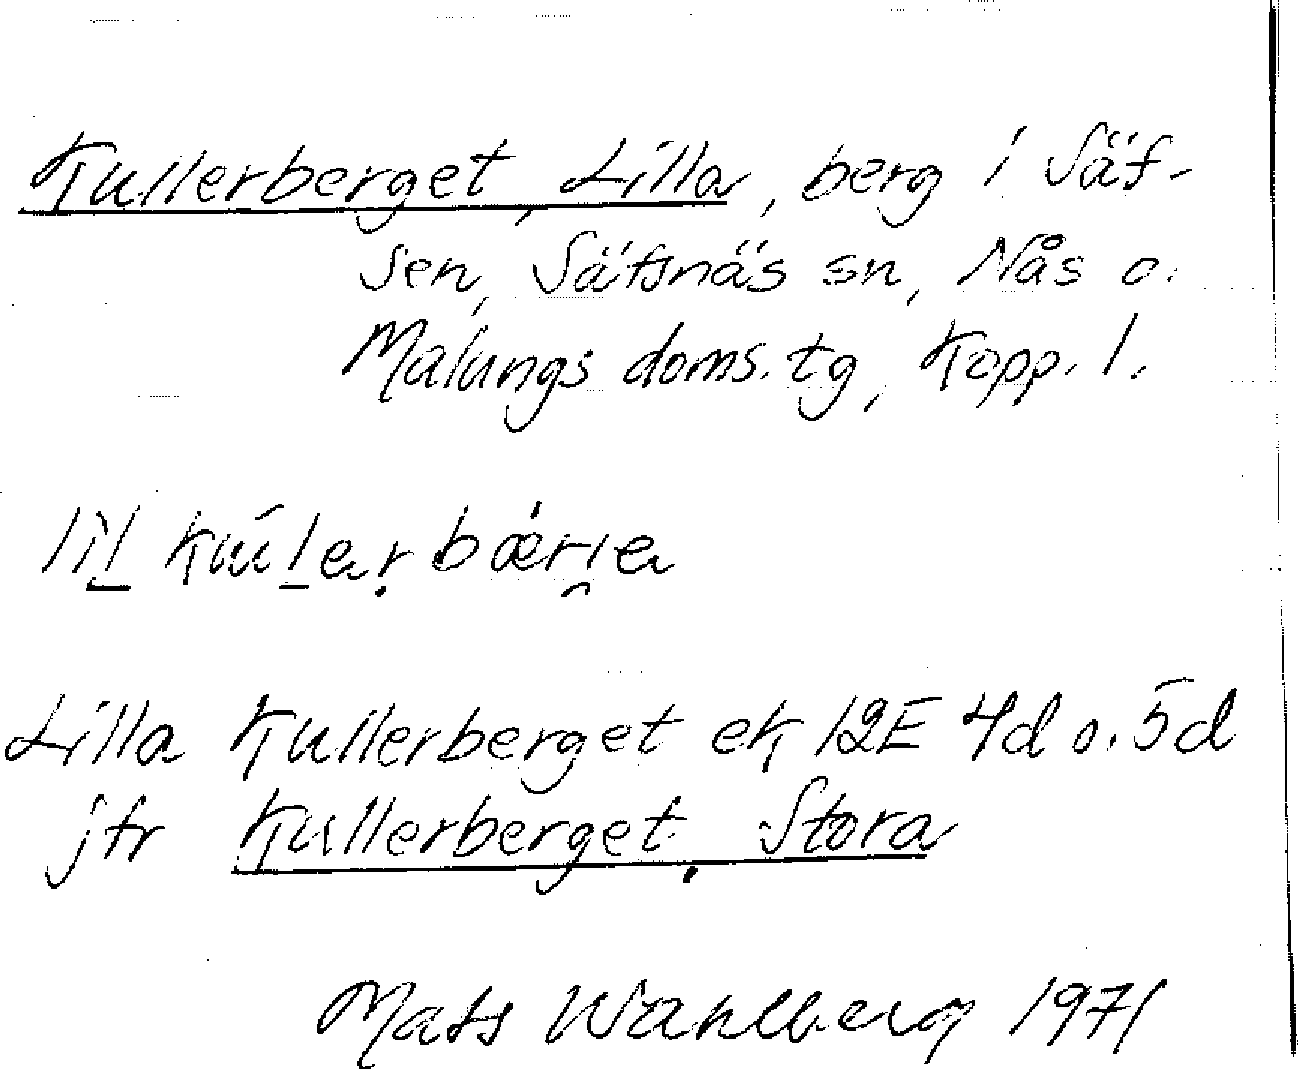 Kullerberget, Lilla, berg i Säf-
sen, Säfsnäs sn, Nås o.
Malungs doms. tg, Kopp. l.
Lilla Kullerberget ek 12E 4d o. 5d
jfr Kullerberget, Stora
Mats Wahlberg 1971